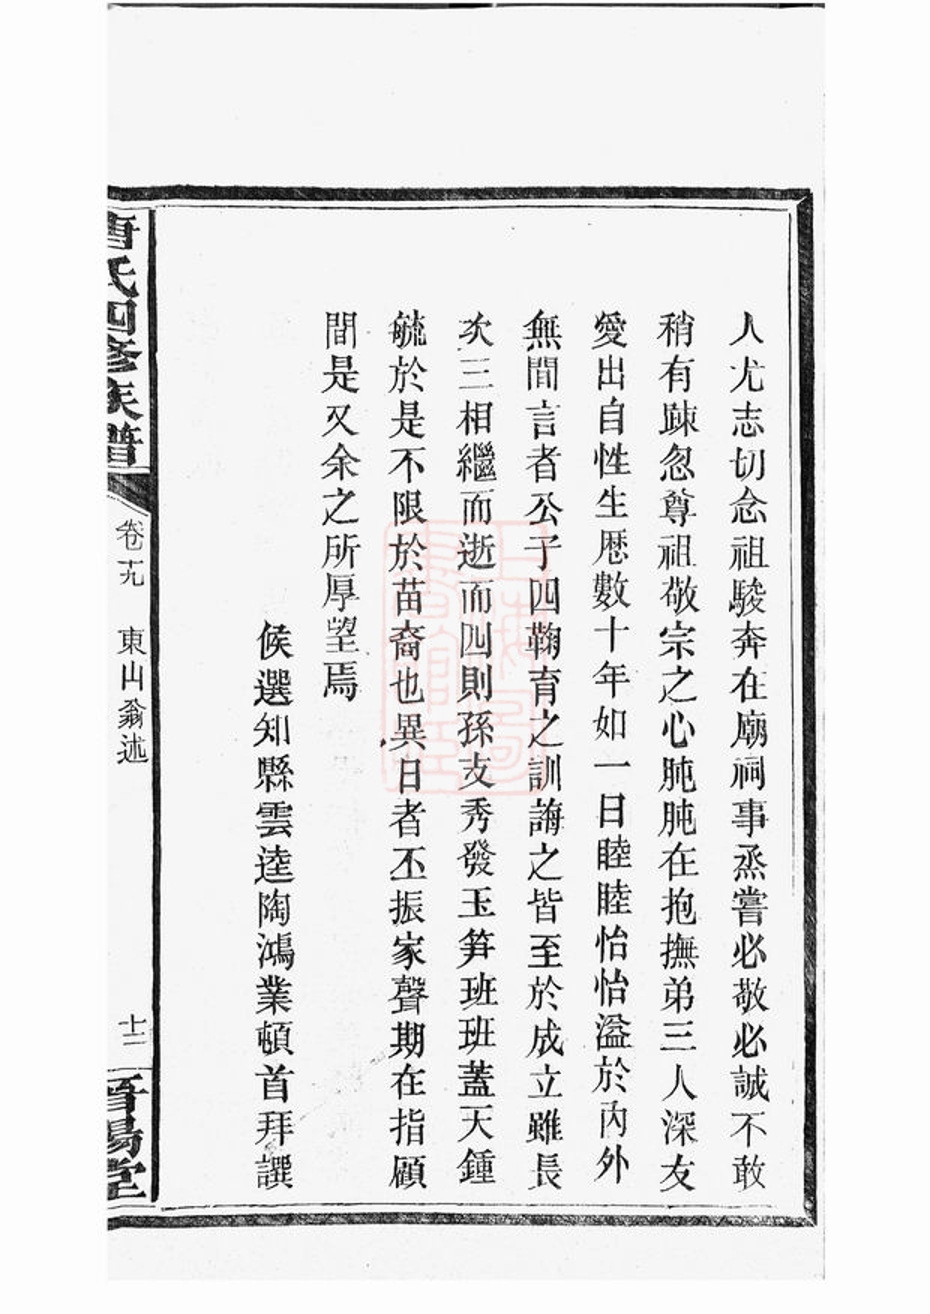 人尤志切念祖駿奔在廟祠事烝嘗必敬必誠不敢
稍有踈忽尊祖敬宗之心肫肫在抱撫弟三人深友
愛出自性生厯數十年如一日睦睦怡怡溢於內外
無間言者公子四鞠育之訓誨之皆至於成立雖長
次三相繼而逝而四則孫支秀發玉笋班班蓋天鍾
毓於是不限於苗裔也異日者丕振家聲期在指顧
間是又余之所厚望焉
候選知縣雲逵陶鴻業頓首拜譔
唐氏四修族譜
卷十九
東山翁述
十二
晋陽堂